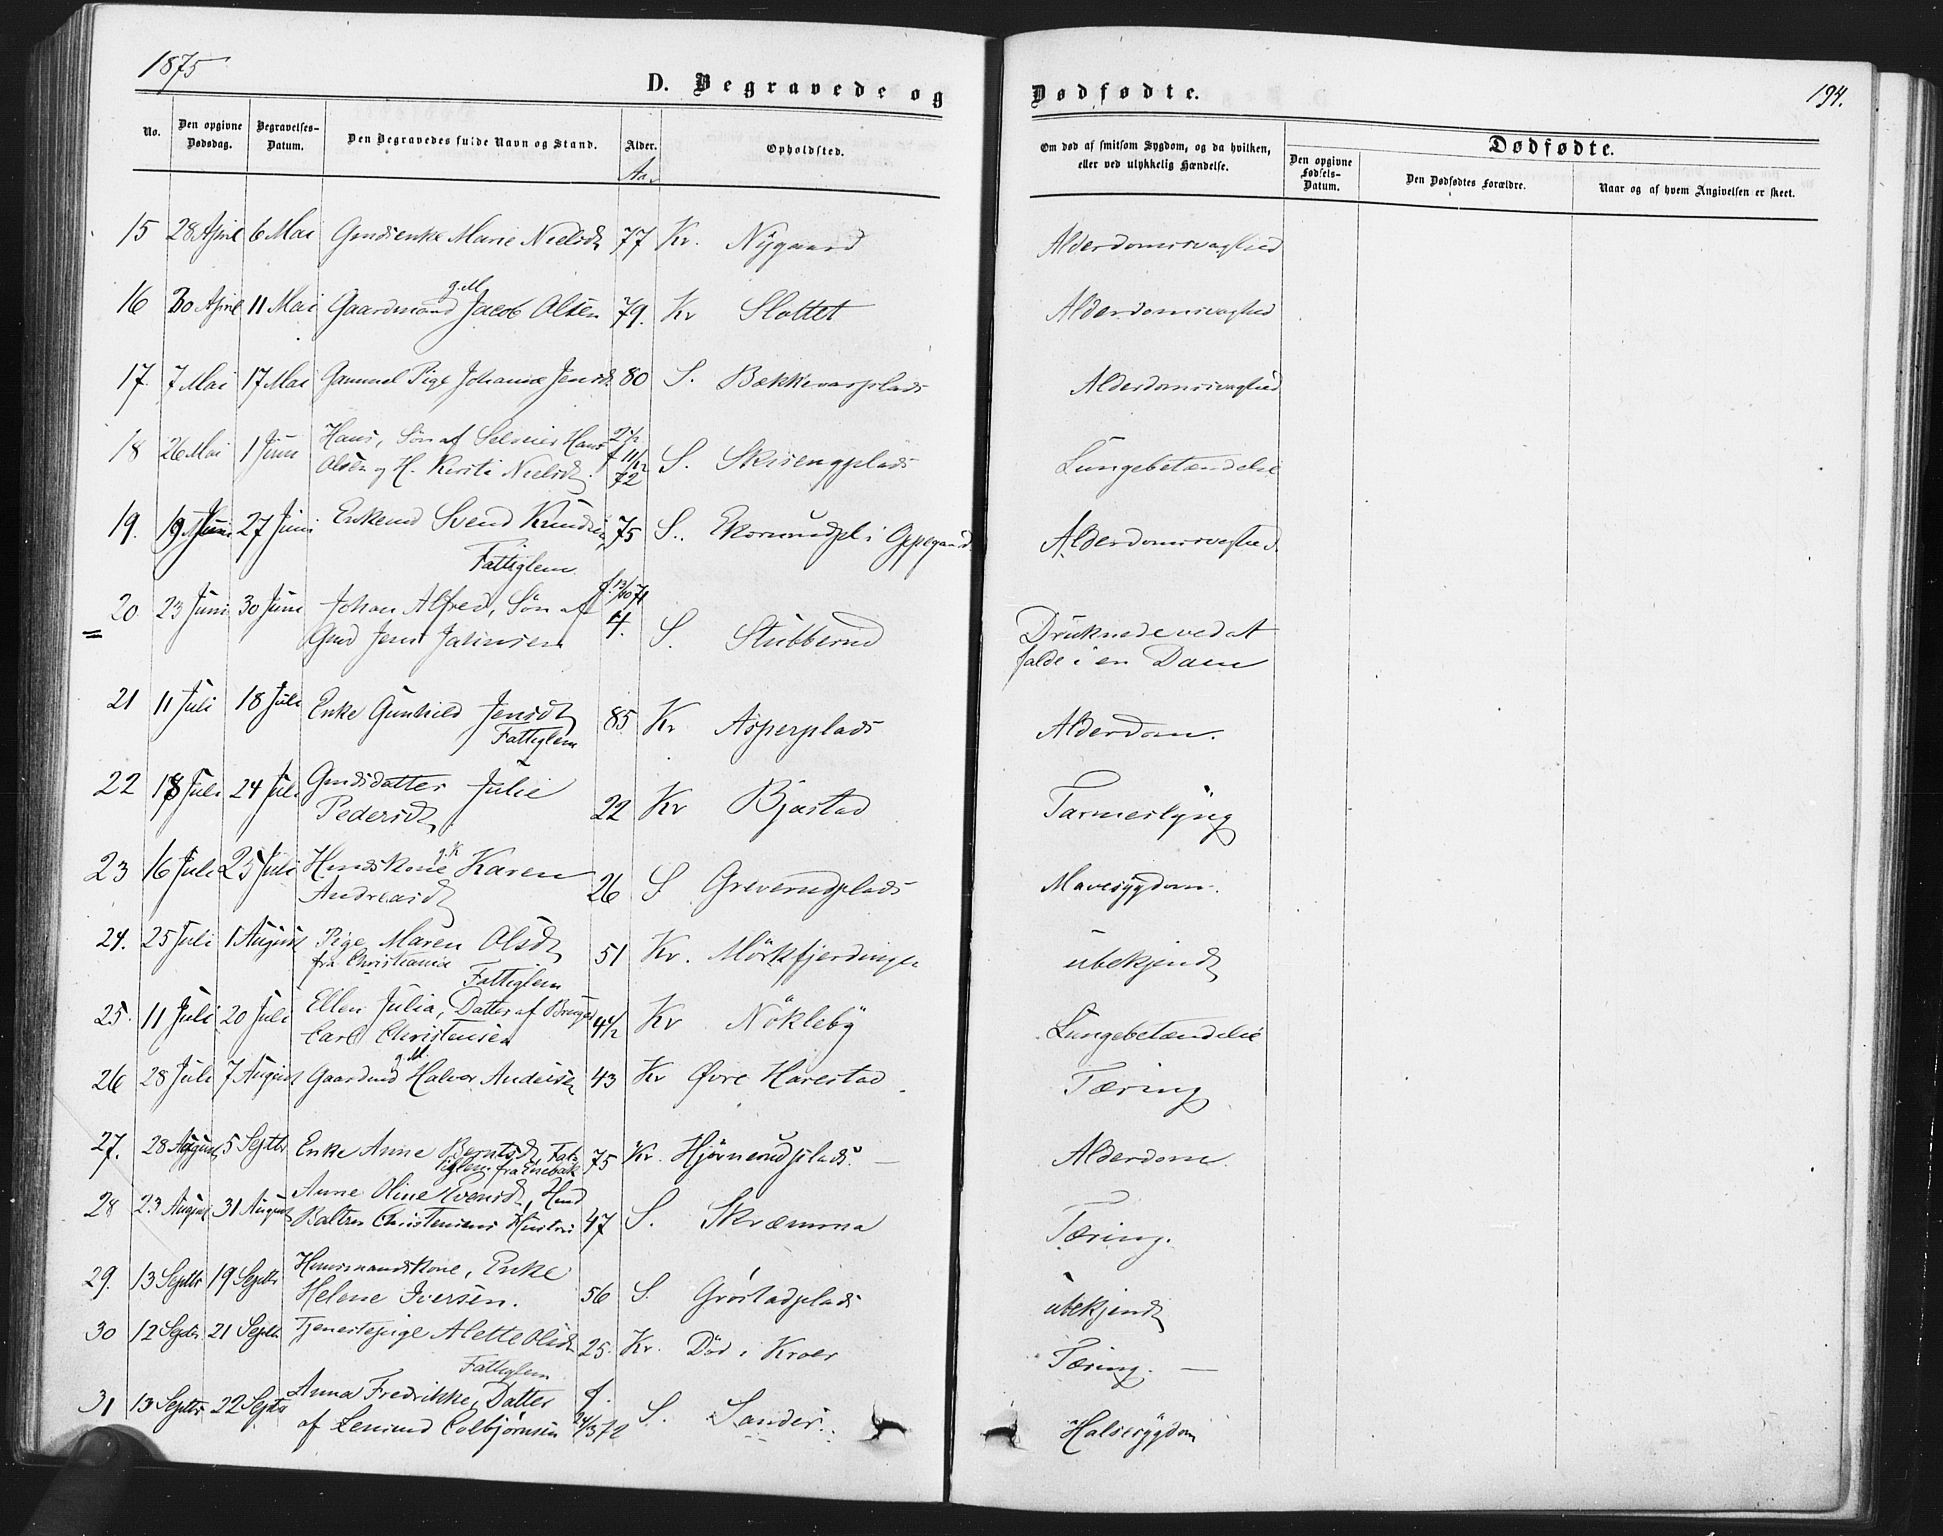 1875
D. Begravede og
Dødfødte.
194.
No.
Den opgivne Dødsdag.
Begravelses-Datum.
Den Begravedes fulde Navn og Stand.
Alder.
Aa.
Opholdsted.
Om død af smitsom Sygdom, og da hvilken,
eller ved ulykkelig Hændelse.
Dødfødte.
Den opgivne Fødsels-Datum.
Den Dødfødtes Forældre.
Naar og af hvem Angivelsen er skeet.
15 28 April 6 Mai Gmdsenke Marie Nielsd 77 Kr. Nygaard Alderdomssvaghed
g.M
16 30 April 11 Mai Gaardmand Jacob Olsen 79. Kr Slottet Alderdomssvaghed
17. 7 Mai 17 Mai Gammel Pige Johanne Jensd. 80 S. Bækkevarplads Alderdomssvaghed
18 26 Mai 1 Juni Hans, Søn af Selveier Hans 2½
Olsen og H. Kirsti Nielsd. f 11/12 72 S. Skisengplads Lungebetændelse
19. 19 Juni 27 Juni Enkemd Svend Knudsen 75 S. Ekornrudpl. i Oppegaard Alderdomssvaghed
Fattiglem
20 23 Juni 30 Juni Johan Alfred, Søn af f. 13/10 71
Gmd Jens Johnsen 4. S. Stubberud Druknede ved at
falde i en Dam
21 11 Juli 18 Juli Enke Gunhild Jensd 85 Kr Asperplads Alderdom.
Fattiglem
22 18 Juli 24 Juli Gmdsdatter Julie
Pedersd 22 Kr Bjøstad Tarmeslyng
g.K
23 16 Juli 25 Juli Hmdskone Karen
Andreasd 26 S Greverudplads Mavesygdom.
24. 25 Juli 1 August Pige Maren Olsd 51 Kr. Mörkfjerdingen ubekjendt
fra Christiania Fattiglem
25. 11 Juli 20 Juli Ellen Julia, Datter af
Carl Christensen 4½ Kr Nökleby Lungebetændelse
g.M.
26 28 Juli 7 August Gaardmd Halvor Andersen 43 Kr Øvre Harestad Tæring
27. 28 August 5 Septbr Enke Anne Berntsd Fat-
tiglem fra 75 Kr. Hjörnerudplads. Alderdom.
28 23 August 31 August Anne Oline Evensd, Hmd
Baltzer Christensens Hustru 47 S. Skræmma Tæring.
29. 13 Septbr 19 Septbr Husmandskone, Enke
Helene Iversen. 56 S. Gröstadplads ubekjendt
30 12 Septbr 21 Septbr Tjenestepige Alette Olsd 25. Kr. Död i Kroer Tæring.
Fattiglem
31 13 Septbr 22 Septbr Anna Fredrikke, Datter f.
af Lensmd Colbjørnsen 24/3 72 S. Sander. Halssygdom